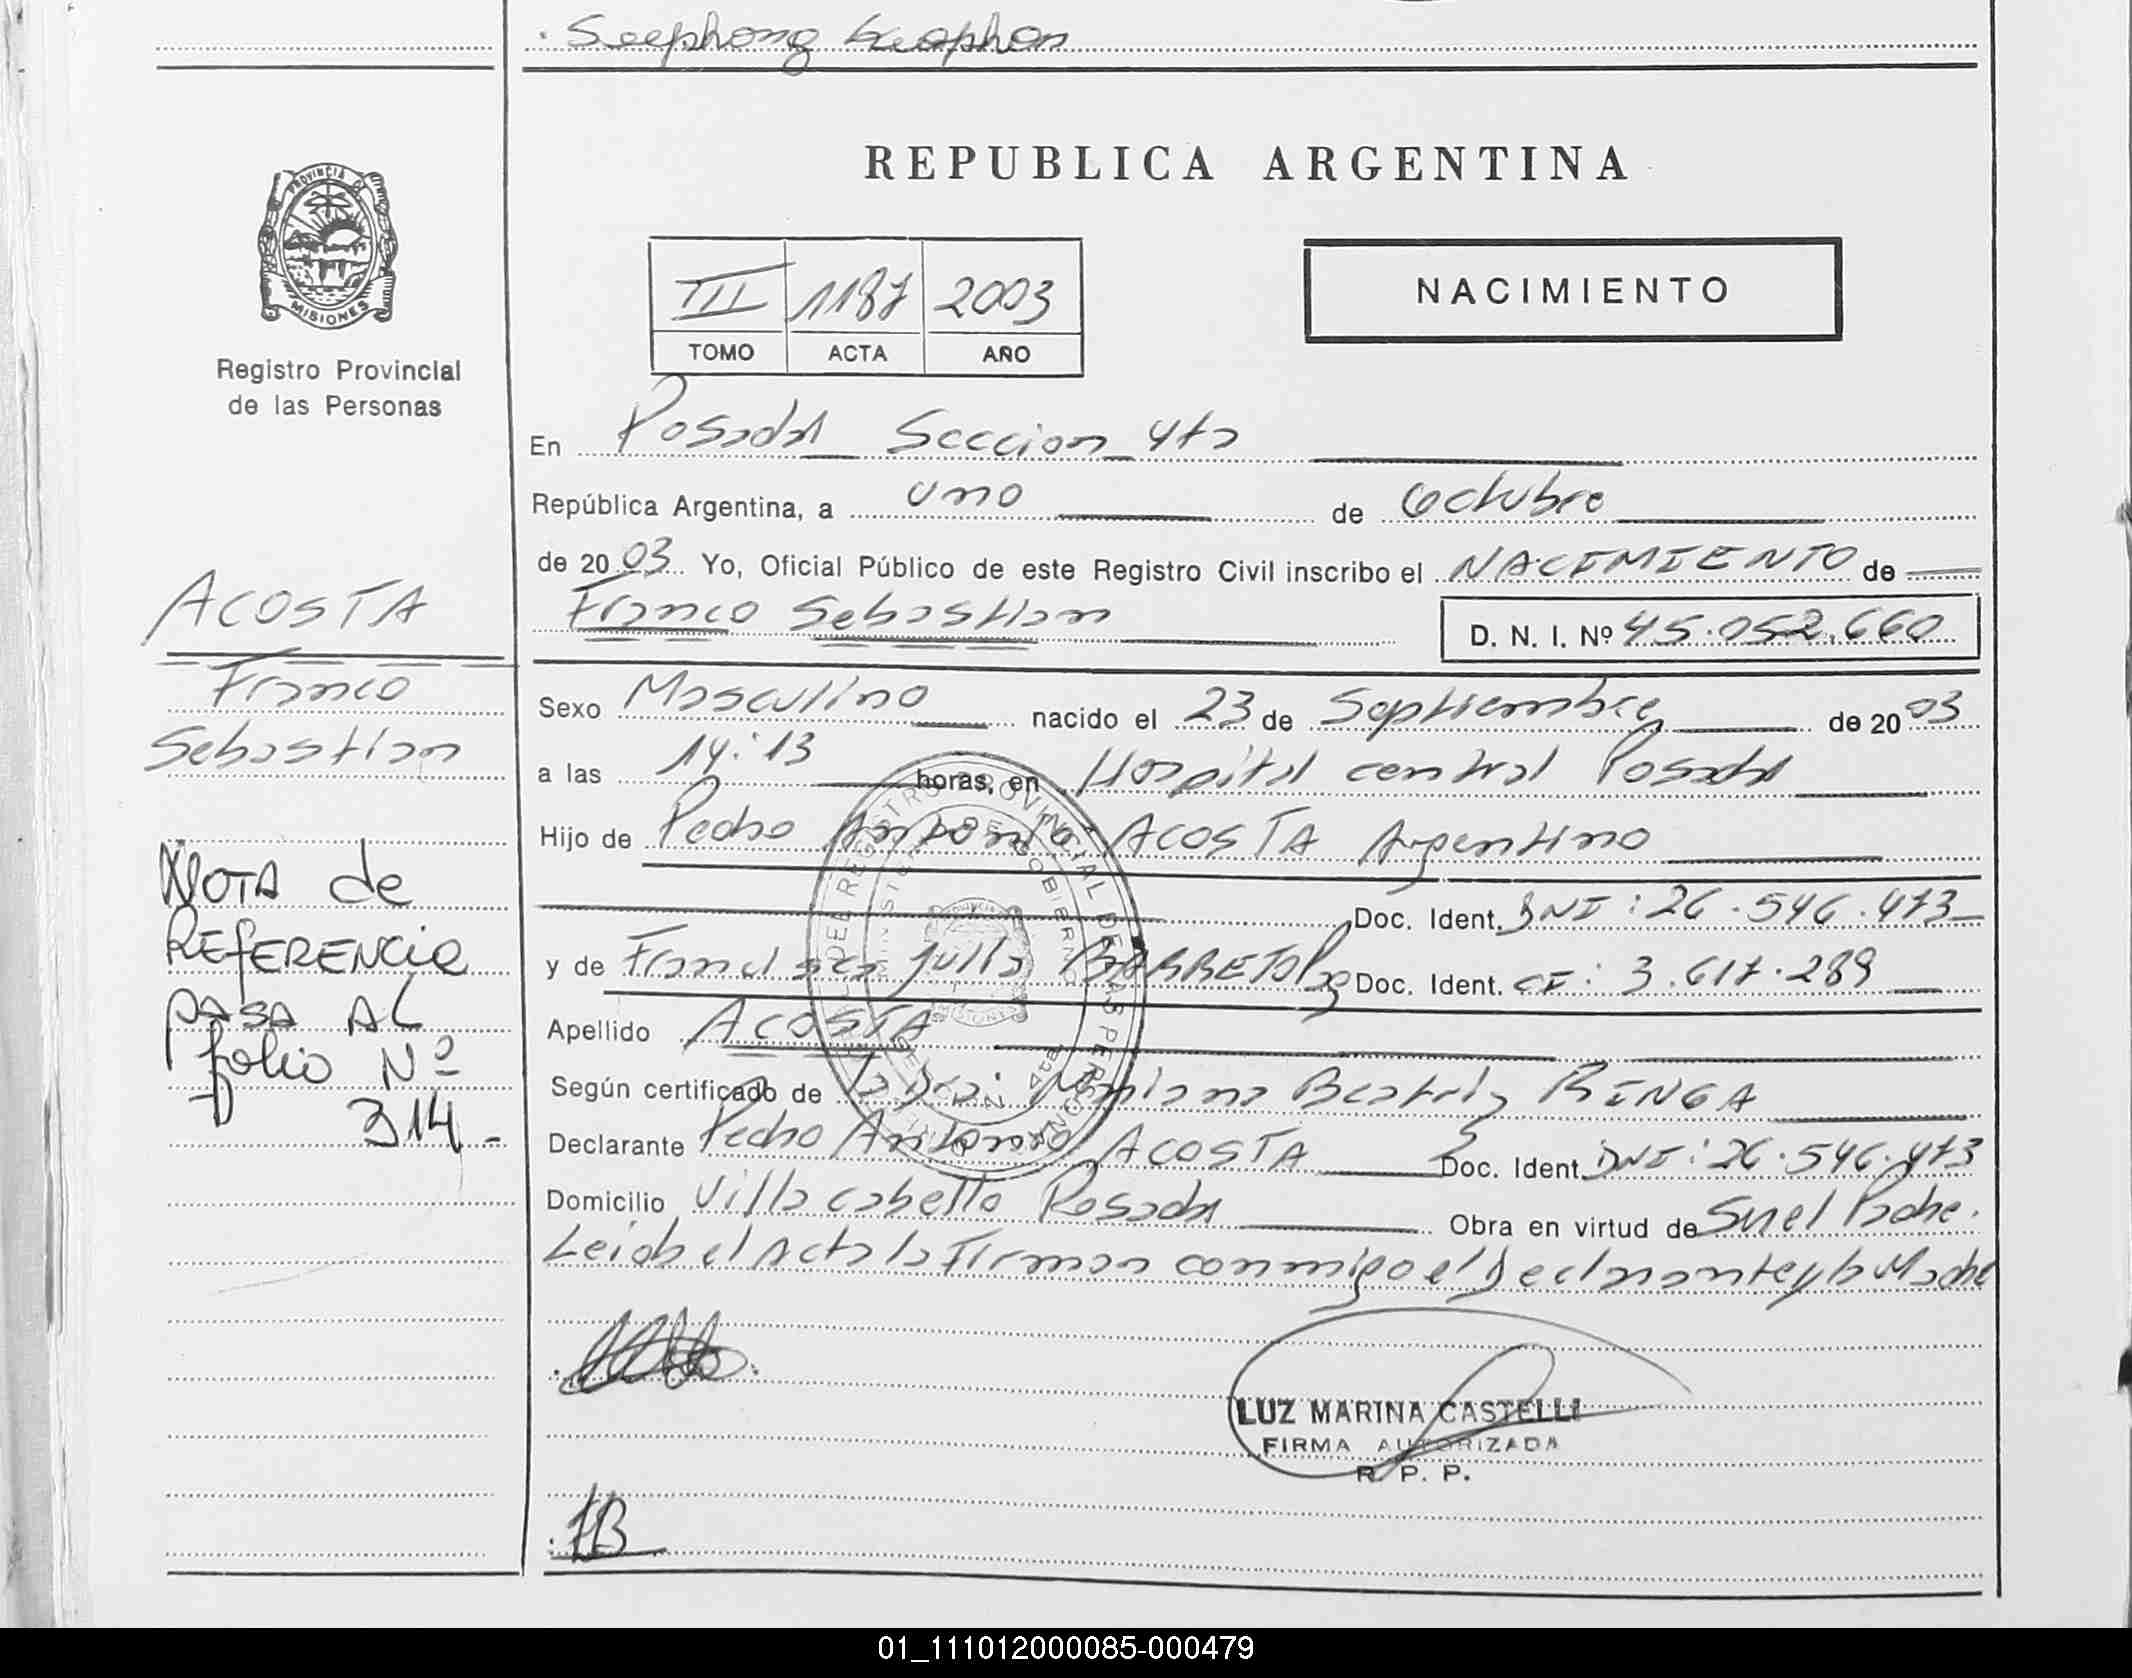 Seephong Keophon
PROVINCIA DE
MISIONES
Registro Provincial
de las Personas
REPUBLICA ARGENTINA
III 1187 2003
TOMO ACTA AÑO
NACIMIENTO
En Posadas Seccion 4ta
República Argentina, a uno de Octubre
de 2003 Yo, Oficial Público de este Registro Civil inscribo el NACIMIENTO de
Franco Sebastian D. N. I. Nº 45.052.660
ACOSTA
Franco
Sebastian
NOTA de
REFERENCIA
PASA AL
folio Nº
314-
Sexo Masculino nacido el 23 de Septiembre de 2003
a las 14:13 horas, en Hospital central Posadas
Hijo de Pedro Antonio ACOSTA Argentino
Doc. Ident. DNI: 26.546.473
y de Francisca Julia BARRETO Doc. Ident. CI: 3.617.289
Apellido ACOSTA
Según certificado de la Dra: Mariana Beatriz RINGA
Declarante Pedro Antonio ACOSTA Doc. Ident. DNI: 26.546.473
Domicilio Villa cabello Posadas Obra en virtud de Ser el Padre.
Leida el Acta la Firman conmigo el Declarante y la Madre
LUZ MARINA CASTELLI
FIRMA AUTORIZADA
R. P. P.
FB
01_111012000085-000479